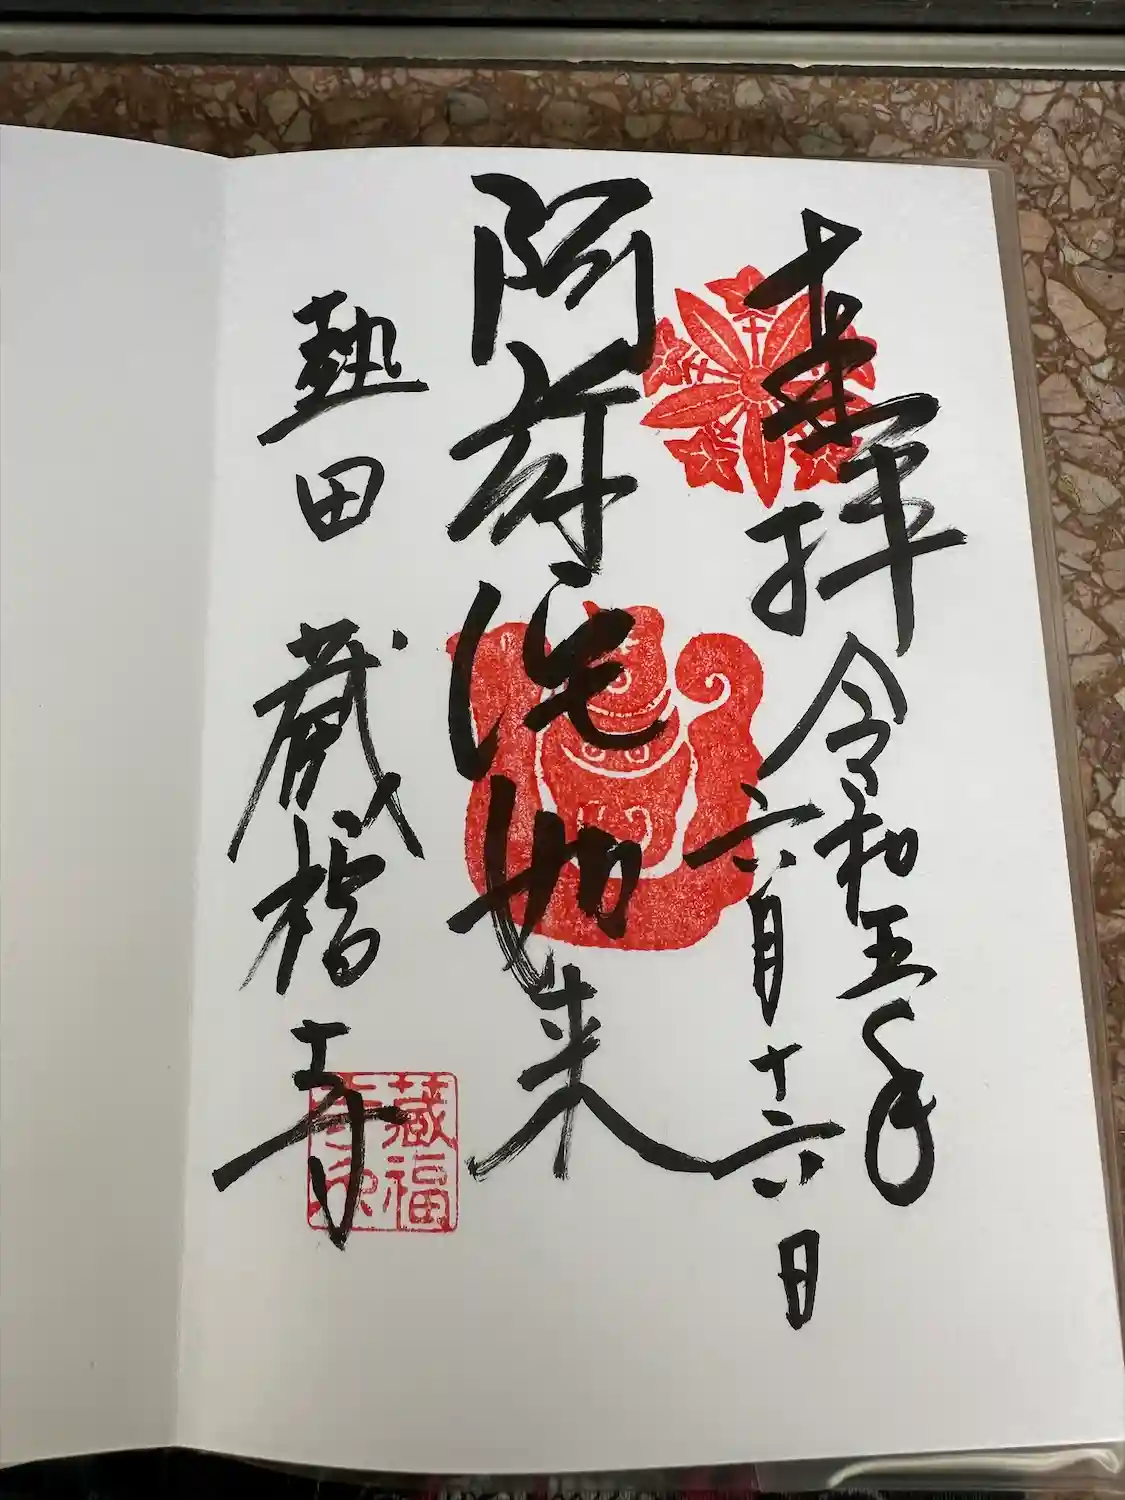 奉拝
令和五年
六月十六日
阿弥陀如来
熱田 蔵福寺
藏福
寺印